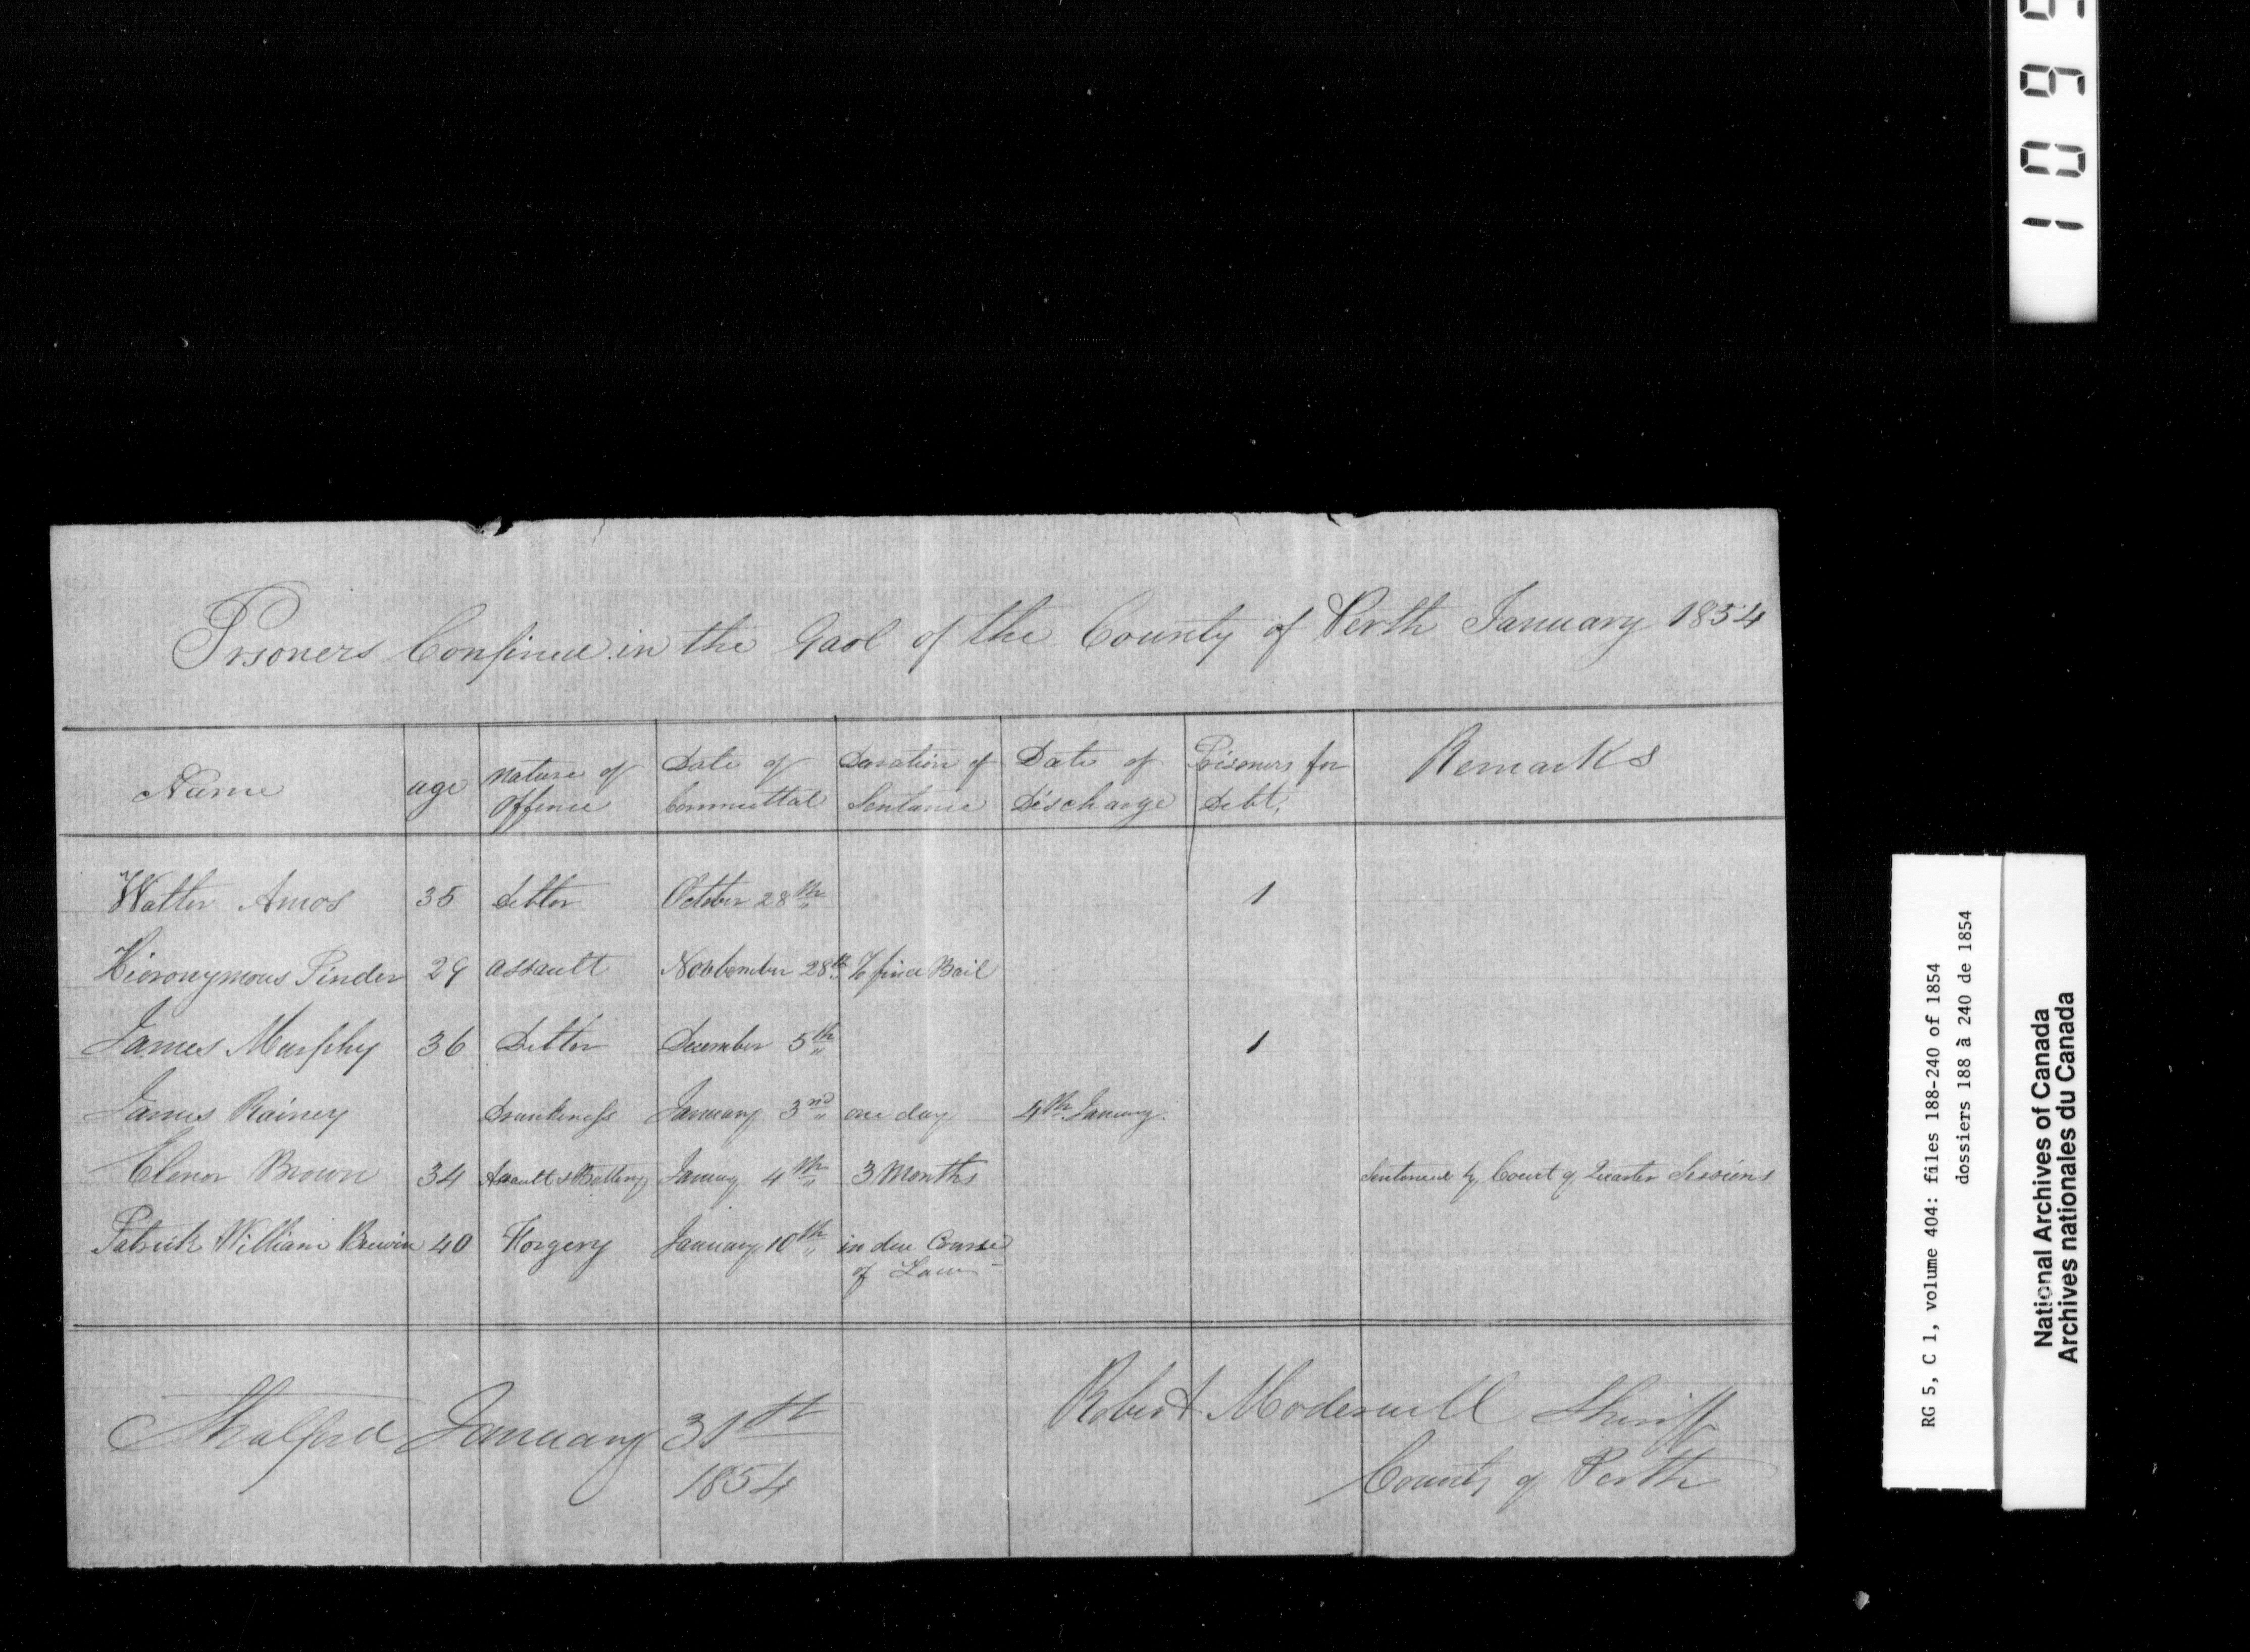 Prisoners Confined in the Gaol of the County of Perth January 1854
Name age Nature of Offence Date of Committal Duration of Sentance Date of Discharge Prisoners for Debt, Remarks
Walter Amos 35 Debtor October 28th 1
Hieronymous Pinder 29 assault November 28th To find Bail
James Murphy 36 Debtor December 5th 1
James Rainey Drunkeness January 3rd one day 4th January.
Elenor Brown 34 Assault & Battery January 4th 3 Months Sentenced by Court of Quarter Sessions
Patrick William Brewin 40 Forgery January 10th in due Course
of Law
Stratford January 31st Robert Moderwell Sheriff
1854 County of Perth
1095
RG 5, C 1, volume 404: files 188-240 of 1854
dossiers 188 à 240 de 1854
National Archives of Canada
Archives nationales du Canada